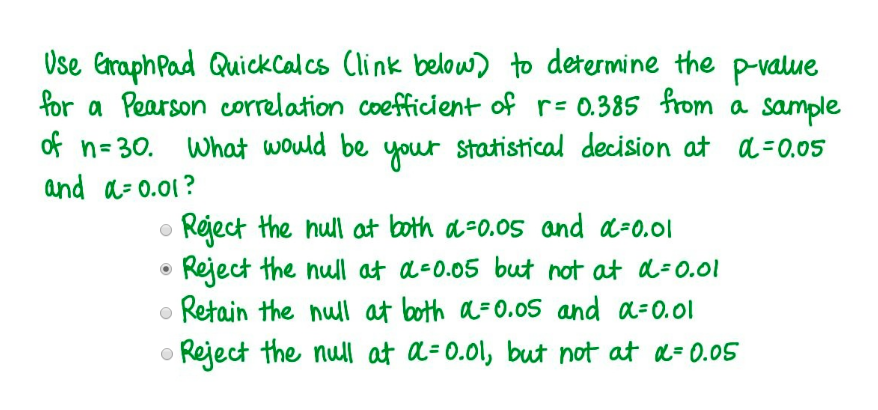 Use GraphPad QuickCalcs (link below) to determine the p-value
for a Pearson correlation coefficient of r= 0.385 from a sample
of n=30. What would be your statistical decision at α=0.05
and α=0.01?
Reject the null at both α=0.05 and α=0.01
Reject the null at α=0.05 but not at α=0.01
Retain the null at both α=0.05 and α=0.01
Reject the null at α=0.01, but not at α=0.05